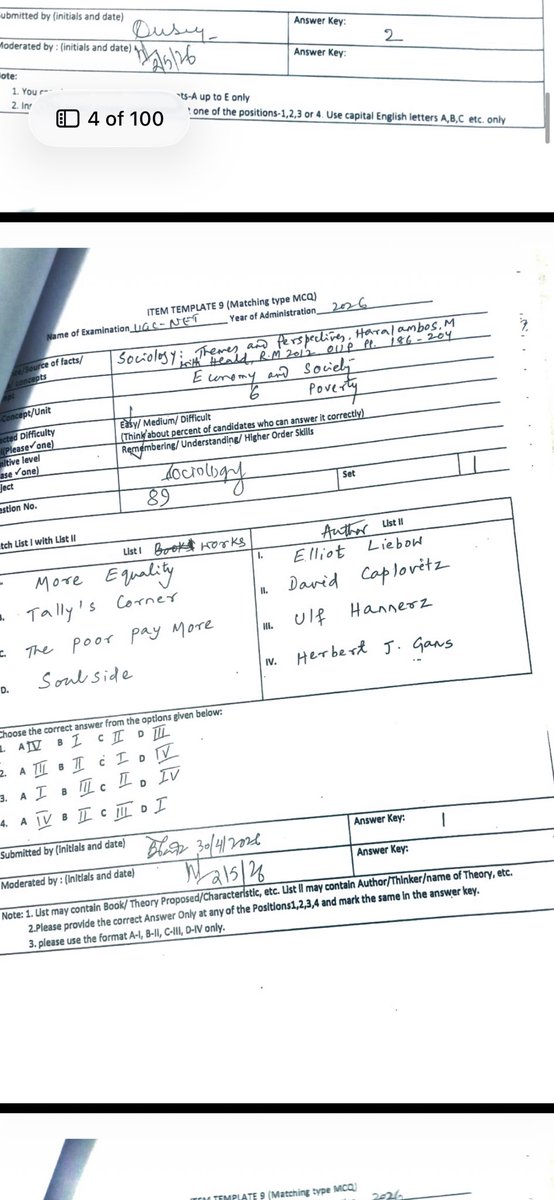 ubmitted by (initials and date)
Answer Key:
2
Moderated by : (initials and date)
2/5/26
Answer Key:
ote:
1. You
ts-A up to E only
2. In
one of the positions-1,2,3 or 4. Use capital English letters A,B,C etc. only
4 of 100
ITEM TEMPLATE 9 (Matching type MCQ)
Name of Examination UGC-NET Year of Administration 2026
ce/Source of facts/
concepts
Sociology: Themes and Perspectives, Haralambos, M
with Heald, R.M 2012 OUP PP. 186-204
Economy and Society
Concept/Unit
6 Poverty
ected Difficulty
(Please✓one)
Easy/ Medium/ Difficult
(Think about percent of candidates who can answer it correctly)
nitive level
ase ✓one)
Remembering/ Understanding/ Higher Order Skills
ject
Sociology
Set
estion No.
89
tch List I with List II
List I Books Works
Author List II
More Equality
I. Elliot Liebow
Tally's Corner
II. David Caplovitz
C. The Poor pay More
III. Ulf Hannerz
D. Soulside
IV. Herbert J. Gans
Choose the correct answer from the options given below:
1. A IV B I C II D III
2. A III B II C I D IV
3. A I B III C II D IV
4. A IV B II C III D I
Submitted by (Initials and date)
30/4/2026
Answer Key: 1
Moderated by : (Initials and date)
2/5/26
Answer Key:
Note: 1. List may contain Book/ Theory Proposed/Characteristic, etc. List II may contain Author/Thinker/name of Theory, etc.
2.Please provide the correct Answer Only at any of the Positions1,2,3,4 and mark the same in the answer key.
3. please use the format A-I, B-II, C-III, D-IV only.
TEMPLATE 9 (Matching type MCQ)
2026